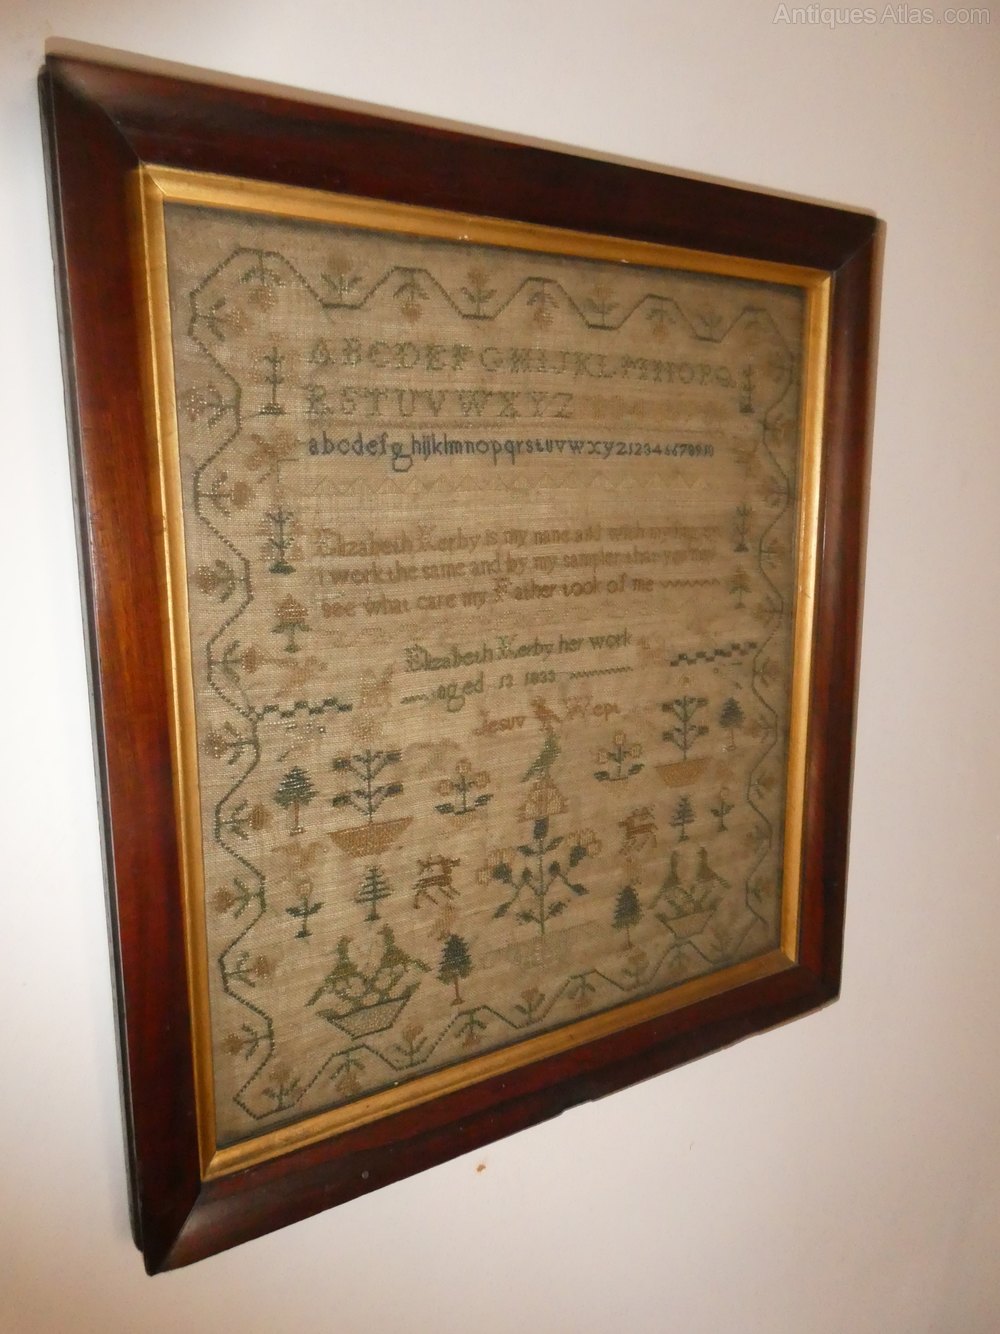 AntiquesAtlas.com
ABCDEFGHIJKLMNOPQ
RSTUVWXYZ
abcdefghijklmnopqrstuvwxyz12345678910
Elizabeth Kerby is my name and with my
I work the same and by my sampler
see what care my Father took of me
Elizabeth Kerby her work
aged 12 1833
Jesuv Wept